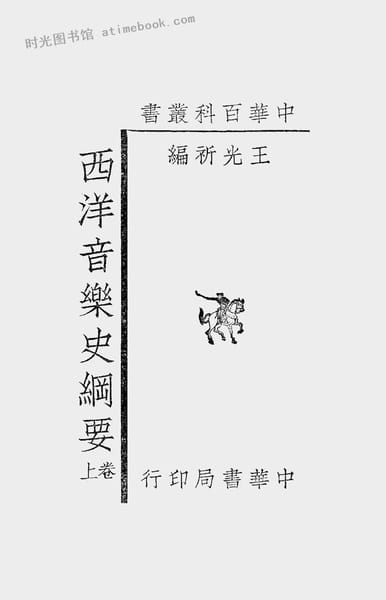 时光图书馆 atimebook.com
中華百科叢書
王光祈編
西洋音樂史綱要
卷上
中華書局印行